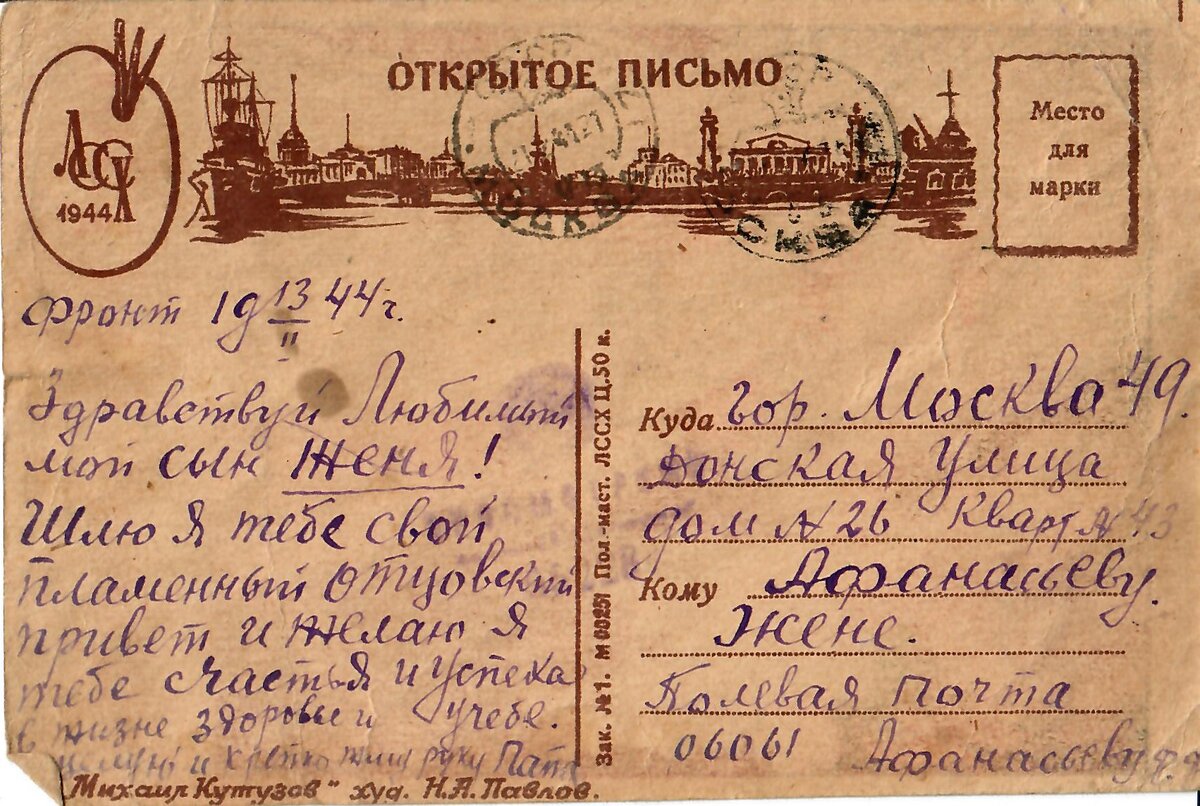 ОТКРЫТОЕ ПИСЬМО
ЛССХ
1944
Место
для
марки
МОСКВА
МОСКВА
Фронт 19 13/II 44 г.
Здравствуй Любимый
мой сын Женя!
Шлю я тебе свой
пламенный отцовский
привет и желаю я
тебе счастья и успеха
в жизне здоровье и учебе.
целую и крепко жму руку Папа
"Михаил Кутузов" худ. Н.А.Павлов.
Зак. №1. М 00251 Пол.-маст. ЛССХ Ц.50 к.
Куда гор. Москва 49.
Донская улица
дом № 26 Кварт № 43
Кому Афанасьеву.
Жене.
Полевая почта
06061 Афанасьеву